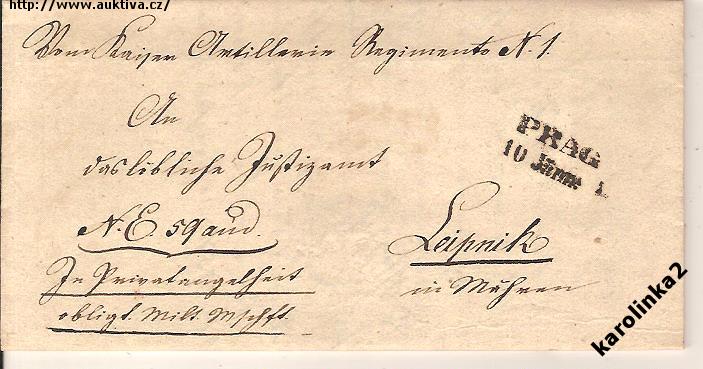 http://www.auktiva.cz/
Vom Kaiser Artillerie Regimento N. 1.
An
das löbliche Justizamt
PRAG
10 Jänn:
N. E. 59 aud.
Leipnik
in Mähren
In Privatangelheit
obligt. Milt.
karolinka2